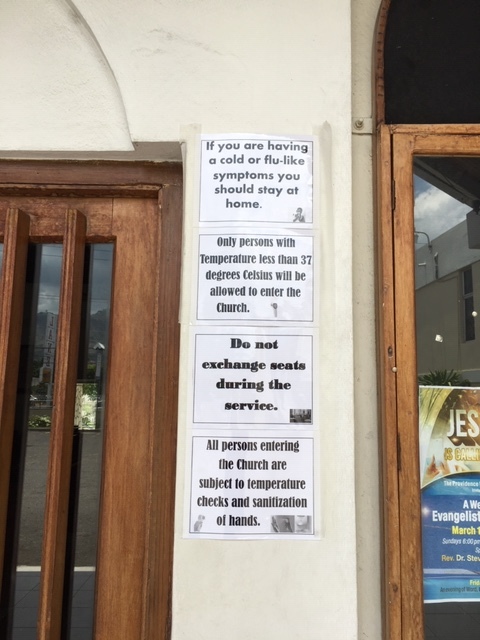 If you are having
a cold or flu-like
symptoms you
should stay at
home.
Only persons with
Temperature less than 37
degrees Celsius will be
allowed to enter the
Church.
Do not
exchange seats
during the
service.
All persons entering
the Church are
subject to temperature
checks and sanitization
of hands.
JES
IS CALLI
The Providence
A We
Evangelist
March 1
Sundays 6:00 pm
Rev. Dr. Stev